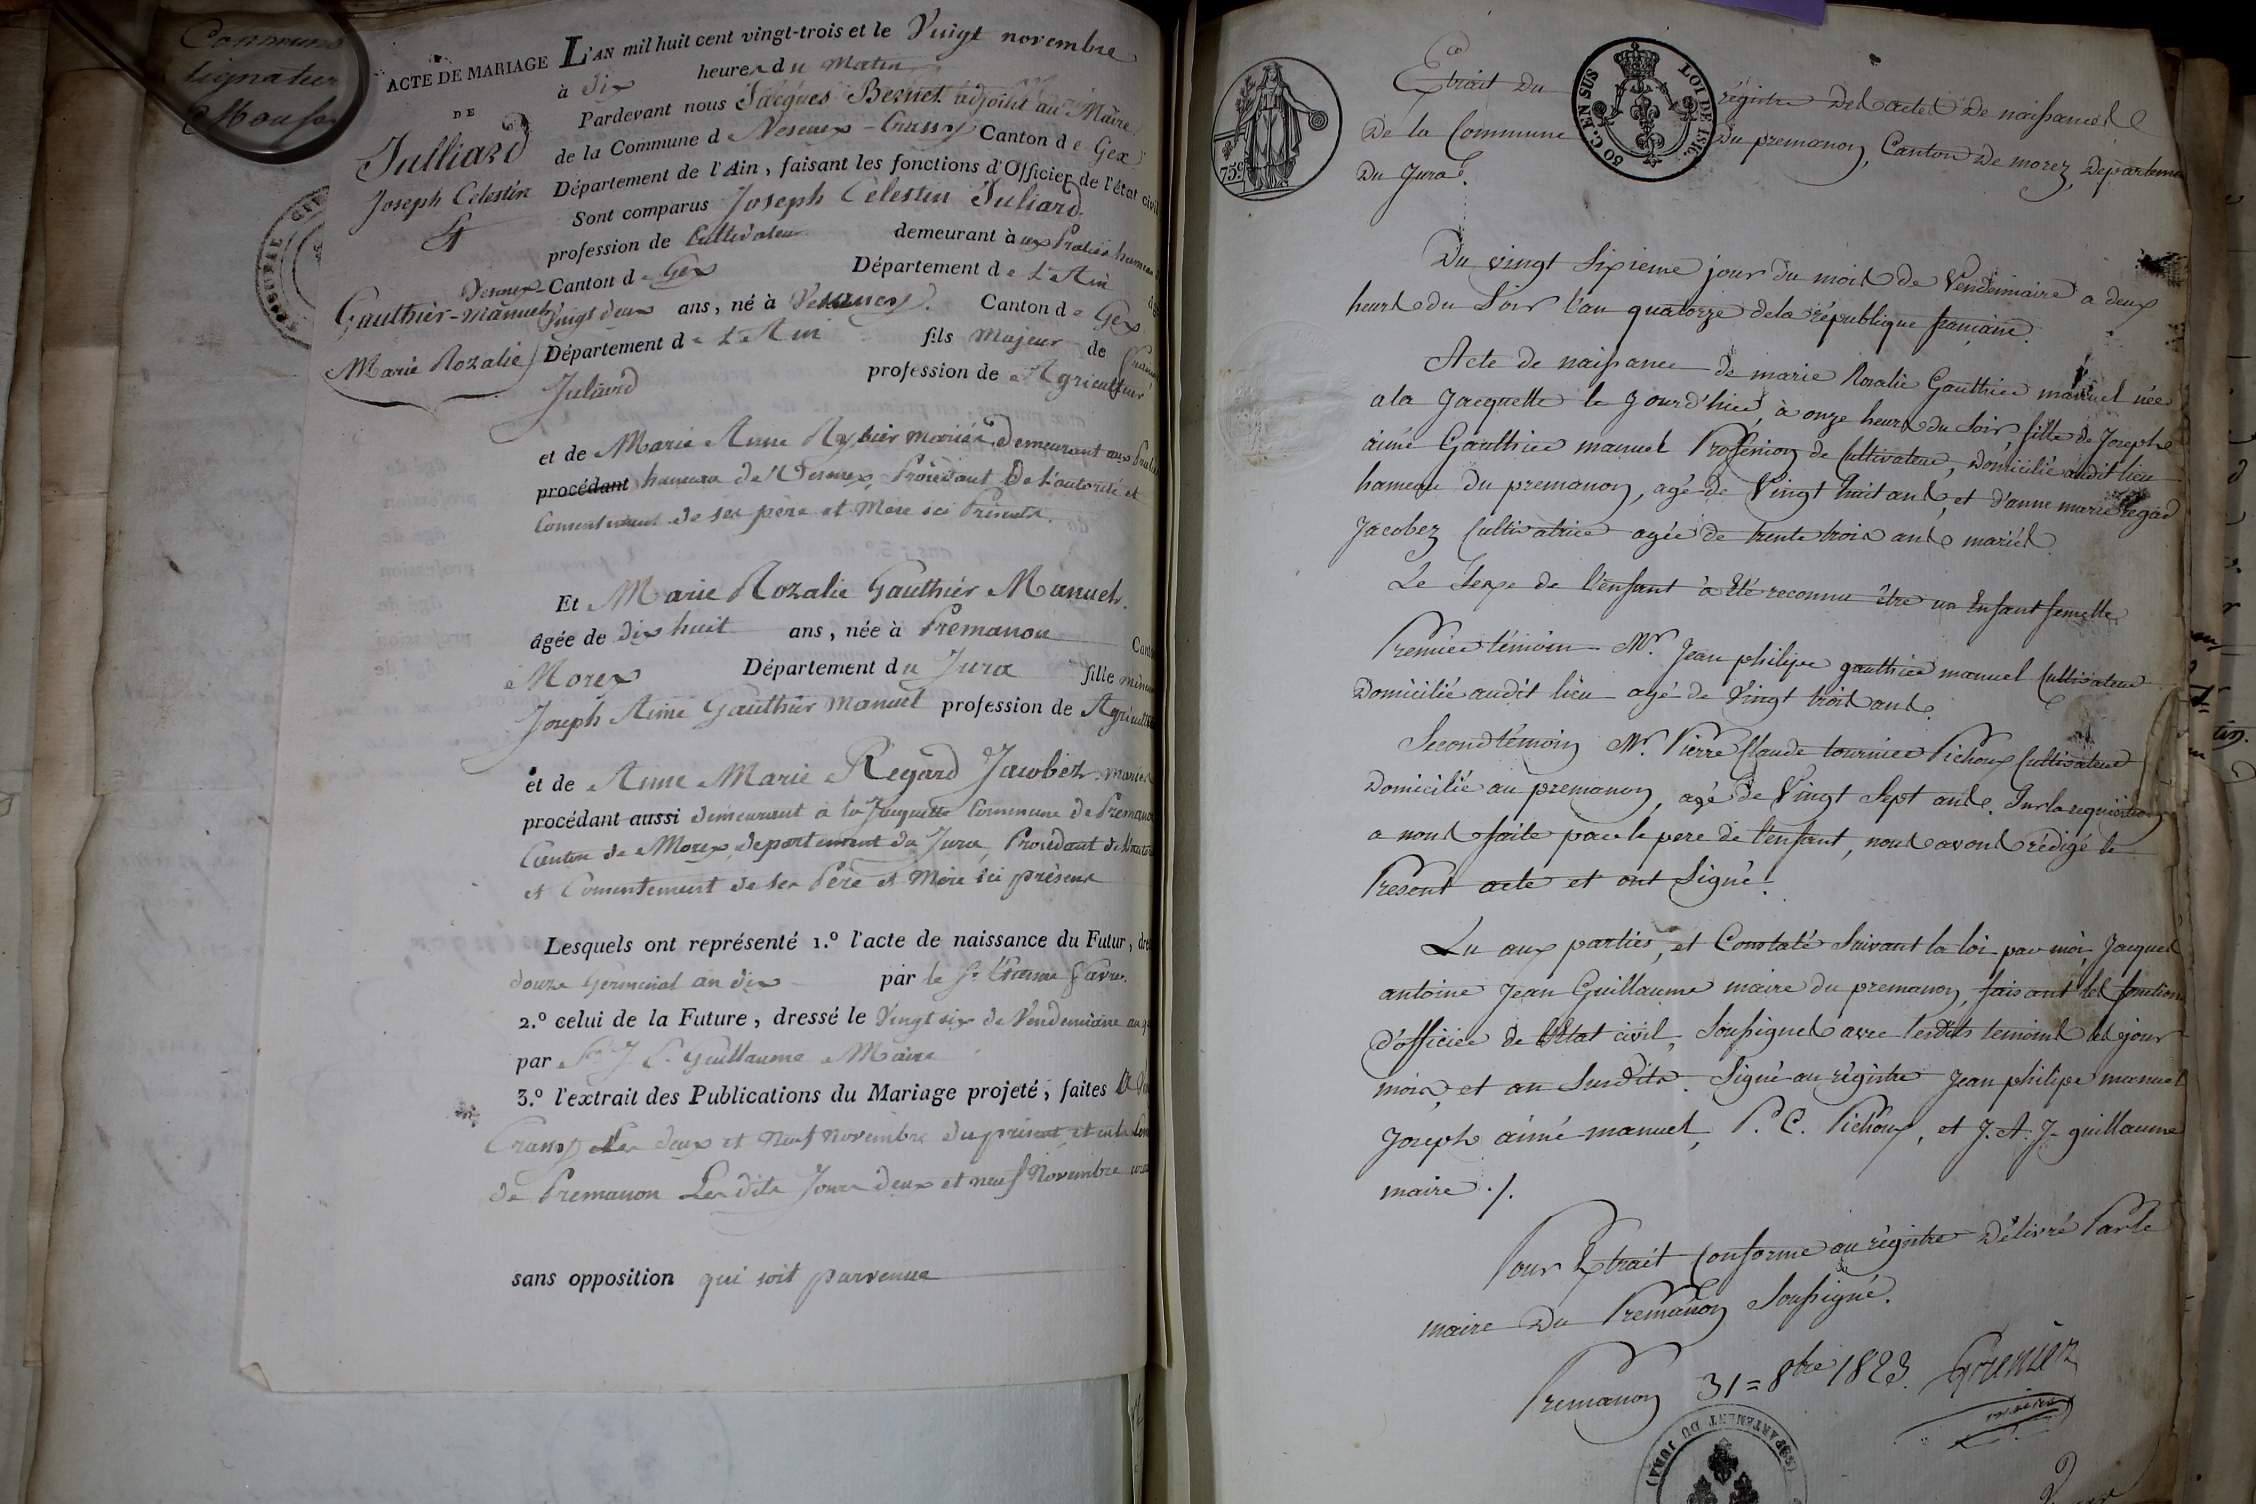 Commune
signateur
ACTE DE MARIAGE
DE
Julliard
Joseph Célestin
&
Gauthier-Manuel
Marie Rozalie
L'AN mil huit cent vingt-trois et le Vingt novembre
à dix heures du Matin
Pardevant nous Jacques Bernet adjoint au Maire
de la Commune de Vesenex-Crassy Canton de Gex
Département de l'Ain, faisant les fonctions d'Officier de l'état civil
Sont comparus Joseph Célestin Juliard
profession de Cultivateur demeurant à
Canton de Gex Département de L'Ain
Vingt deux ans, né à Vesancy Canton de Gex
Département de L'Ain fils Majeur de
Juliard profession de Agriculteur
et de Marie Anne mariés demeurant aux
procédant hameau de Procédant De l'autorité et
Consentement de ses père et Mère ici Présents.
Et Marie Rozalie Gauthier Manuel.
âgée de dix huit ans, née à Prémanon
Morez Département du Jura fille
Joseph Aimé Gauthier Manuel profession de
et de Anne Marie Regard Jacobez mariés
procédant aussi demeurant à la Jaquette Commune de
Canton de Morez, departement du Jura, Procédant de
et Consentement de ses Père et Mère ici présens
Lesquels ont représenté 1.º l'acte de naissance du Futur,
douze Germinal an dix par le Sr. Favre.
2.º celui de la Future, dressé le Vingt six de Vendemiaire
par Guillaume Maire
3.º l'extrait des Publications du Mariage projeté, faites
Crassy Les deux et Neuf Novembre du présent, et en la
de Premanon Les dits Jours deux et neuf Novembre
sans opposition qui soit parvenue
75c
50 C. EN SUS
LOI DE 1816.
Extrait du régistre des actes de naissances
De la Commune du premanon, Canton de morez, Departemen
Du Jura.
Du vingt sixieme jour du mois de Vendemiaire a deux
heures du Soir l'an quatorze de la république française.
Acte de naissance de marie Rosalie Gauthier manuel née
a la Jacquette le jour d'hier, à onze heures du Soir, fille de Joseph
aimé Gauthier manuel Profession de Cultivateur, Domicilié audit lieu
hameau du premanon, agé de Vingt huit ans, et d'anne marie regard
Jacobez Cultivatrice agée de trente trois ans mariés.
Le Sexe de l'enfant à été reconnu être un Enfant femelle
Premier témoin Mr. Jean philipe gauthier manuel Cultivateur
Domicilié audit lieu agé de Vingt trois ans.
Second témoin Mr. Pierre Claude tournier Pichoux Cultivateur
Domicilié au premanon, agé de Vingt Sept ans. Sur la requisition
a nous faite par le pere de l'enfant, nous avons rédigé le
Present acte et ont Signé.
Lu aux parties, et Constaté Suivant la loi par moi, Jacques
antoine Jean Guillaume maire du premanon, faisant les fonctions
d'officier de l'état civil, Soussignés avec lesdits temoins les jour
mois, et an Susdits. Signé au régistre Jean philipe manuel
Joseph aimé manuel, P. C. Pichoux, et J. A. J. guillaume
maire ./.
Pour Extrait Conforme au régistre Délivré Par le
maire Du Premanon Soussigné.
Premanon 31 = 8bre 1823. Grenier
maire
DEPARTEMENT DU JURA